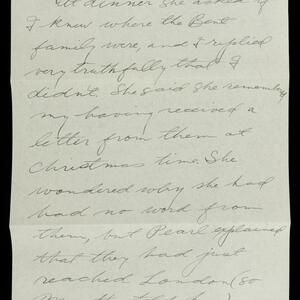 At dinner she asked if
I knew where the Bent
family were, and I replied
very truthfully that I
didn't. She said she remembers
my having received a
letter from them at
Christmas time. She
wondered why she had
had no word from
them, but Pearl explained
that they had just
reached London (so